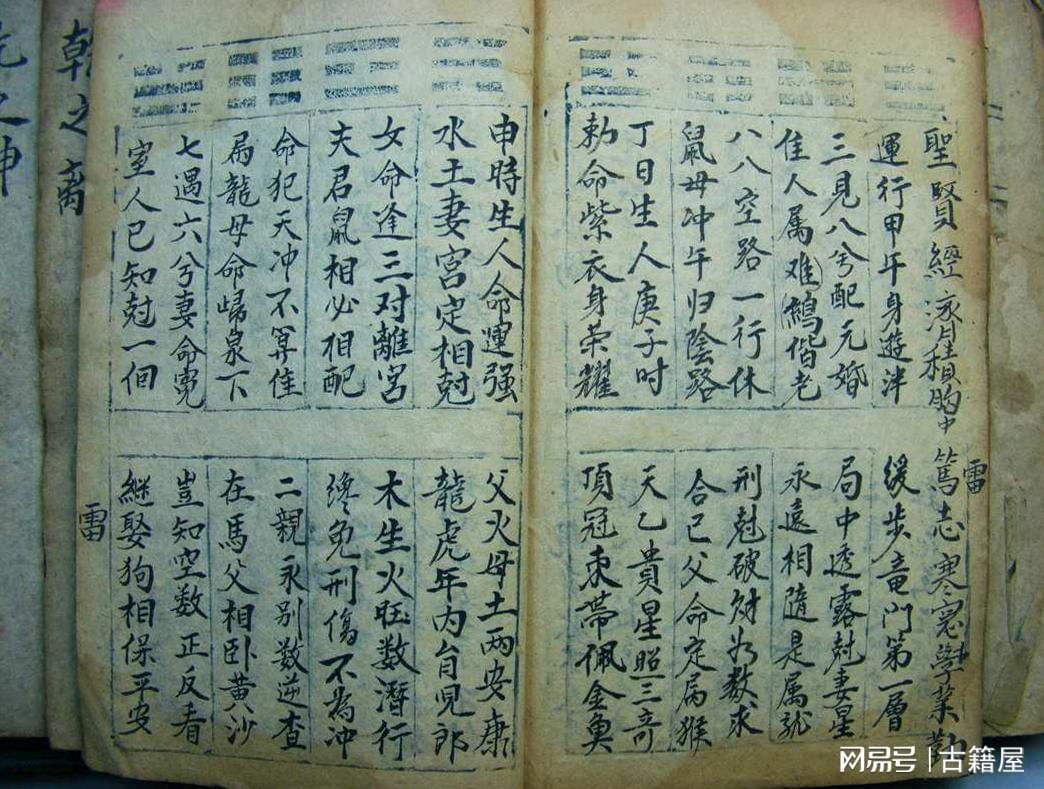 聖賢經濟積胸中
篤志寒窓學業勤
雷
運行甲午身遊泮
緩步竜門第一層
三見八兮配元婚
局中透露尅妻星
佳人属难(鷄)偕老
永遠相隨是属龙
八八空路一行休
刑尅破财为数求
鼠母冲午归陰路
合巳父命定属猴
丁日生人庚子时
天乙貴星照三奇
勅命紫衣身荣耀
頂冠束帶佩金魚
申時生人命運强
父火母土两安康
水土妻宫定相尅
龍虎年内育児郎
女命逢三对離宫
木生火旺数潛行
夫君鼠相必相配
终免刑傷不為冲
命犯天冲不算佳
二親永别数逆查
属龍母命帰泉下
在馬父相卧黄沙
七遇六兮妻命宽
豈知空数正反看
室人已知尅一個
継娶狗相保平安
雷
乾之离
之坤
网易号 | 古籍屋